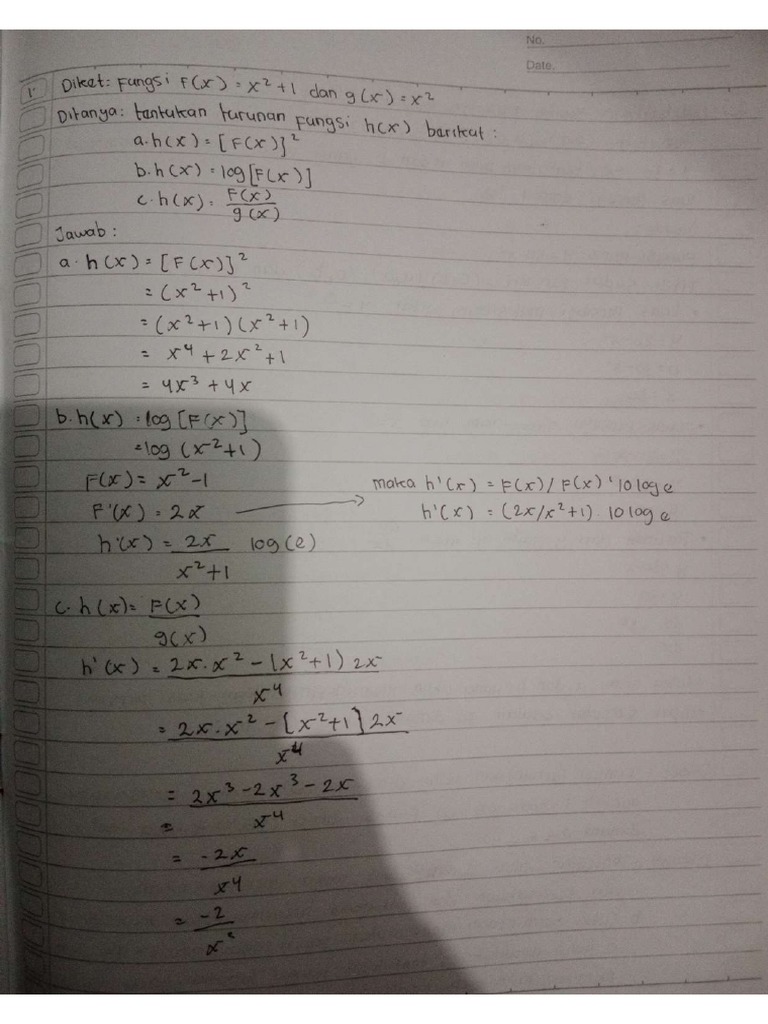 No.
Date.
1. Diket: Fungsi F(x) = x² + 1 dan g(x) = x²
Ditanya: tentukan turunan fungsi h(x) barikut :
a. h(x) = [F(x)]²
b. h(x) = log [F(x)]
c. h(x) = F(x)/g(x)
Jawab :
a. h(x) = [F(x)]²
= (x² + 1)²
= (x² + 1) (x² + 1)
= x⁴ + 2x² + 1
= 4x³ + 4x
b. h(x) = log [F(x)]
= log (x² + 1)
F(x) = x² - 1
F'(x) = 2x → maka h'(x) = F(x) / F(x) ' 10 log e
h'(x) = (2x/x² + 1) . 10 log e
h'(x) = 2x/x² + 1 log (e)
c. h(x) = F(x)/g(x)
h'(x) = 2x . x² - (x² + 1) 2x/x⁴
= 2x . x² - [x² + 1] 2x/x⁴
= 2x³ - 2x³ - 2x/x⁴
=
= -2x/x⁴
= -2/x